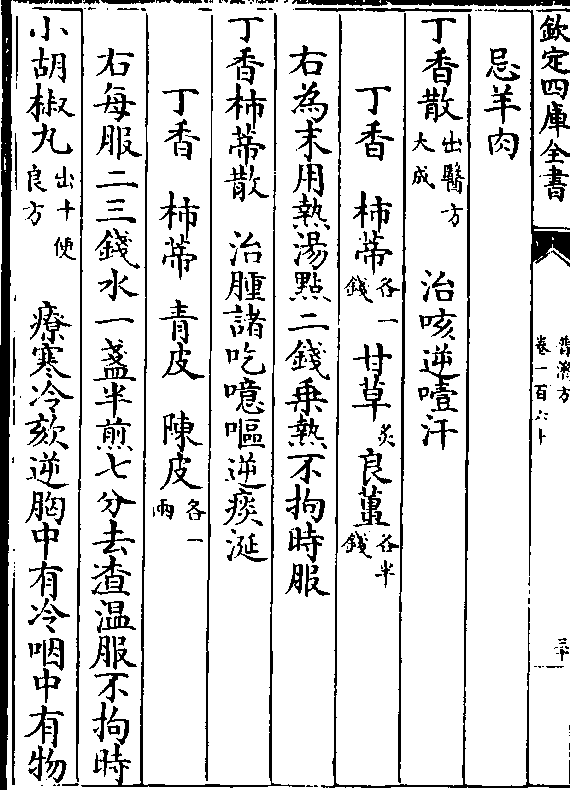 欽定四庫全書
普濟方
卷一百六十
三十
忌羊肉
丁香散出醫方大成　治咳逆噎汗
丁香　柿蒂各一錢　甘草炙　良薑各半錢
右為末用熱湯點二錢乗熱不拘時服
丁香柿蒂散　治腫諸吃噫嘔逆痰涎
丁香　柿蒂　青皮　陳皮各一兩
右每服二三錢水一盞半煎七分去渣温服不拘時
小胡椒丸出十便良方　療寒冷欬逆胸中有冷咽中有物